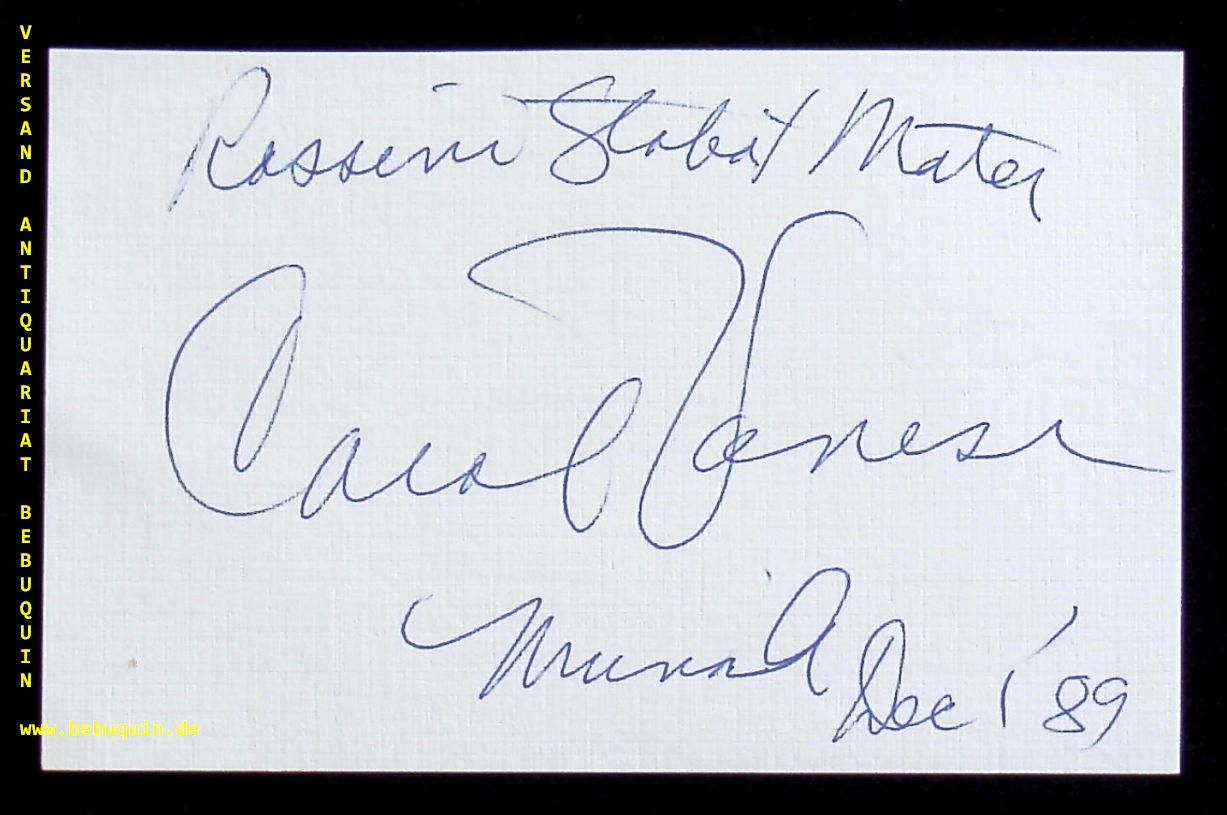 Rossini Stabat Mater
Carol Vaness
Munich Dec 1 '89
VERSAND ANTIQUARIAT BEBUQUIN
www.bebuquin.de